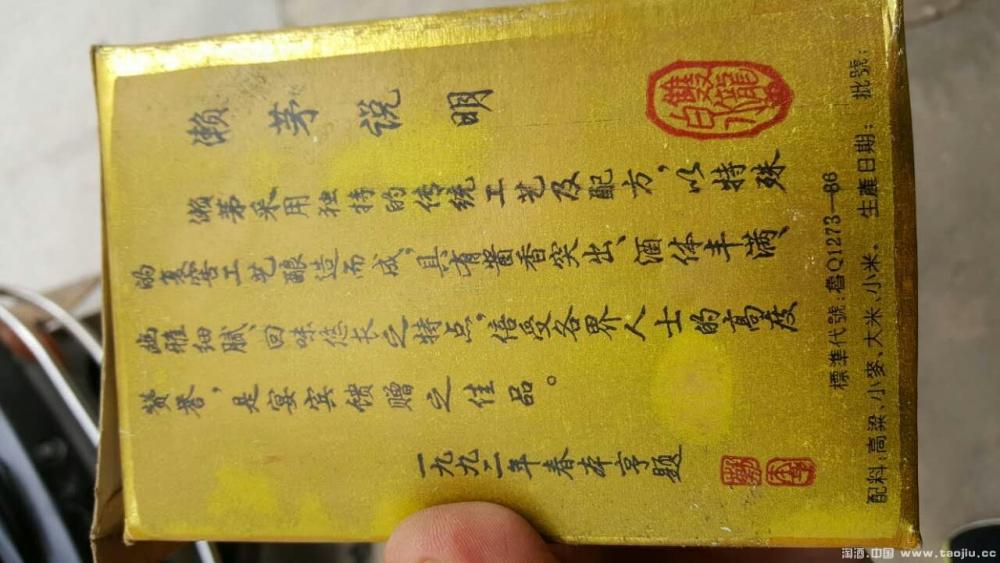 懒茅说明
懒茅采用独特的传统工艺及配方，以特殊
的多窖工艺酿造而成，具有酱香突出、酒体丰满、
幽雅细腻、回味悠长之特点，倍受各界人士的高度
赞誉，是宴宾馈赠之佳品。
一九九二年春本亨题
雙龍
標準代號：魯Q1273—86
配料：高粱、小麥、大米、小米．生產日期：批號：
淘酒.中国 www.taojiu.cc